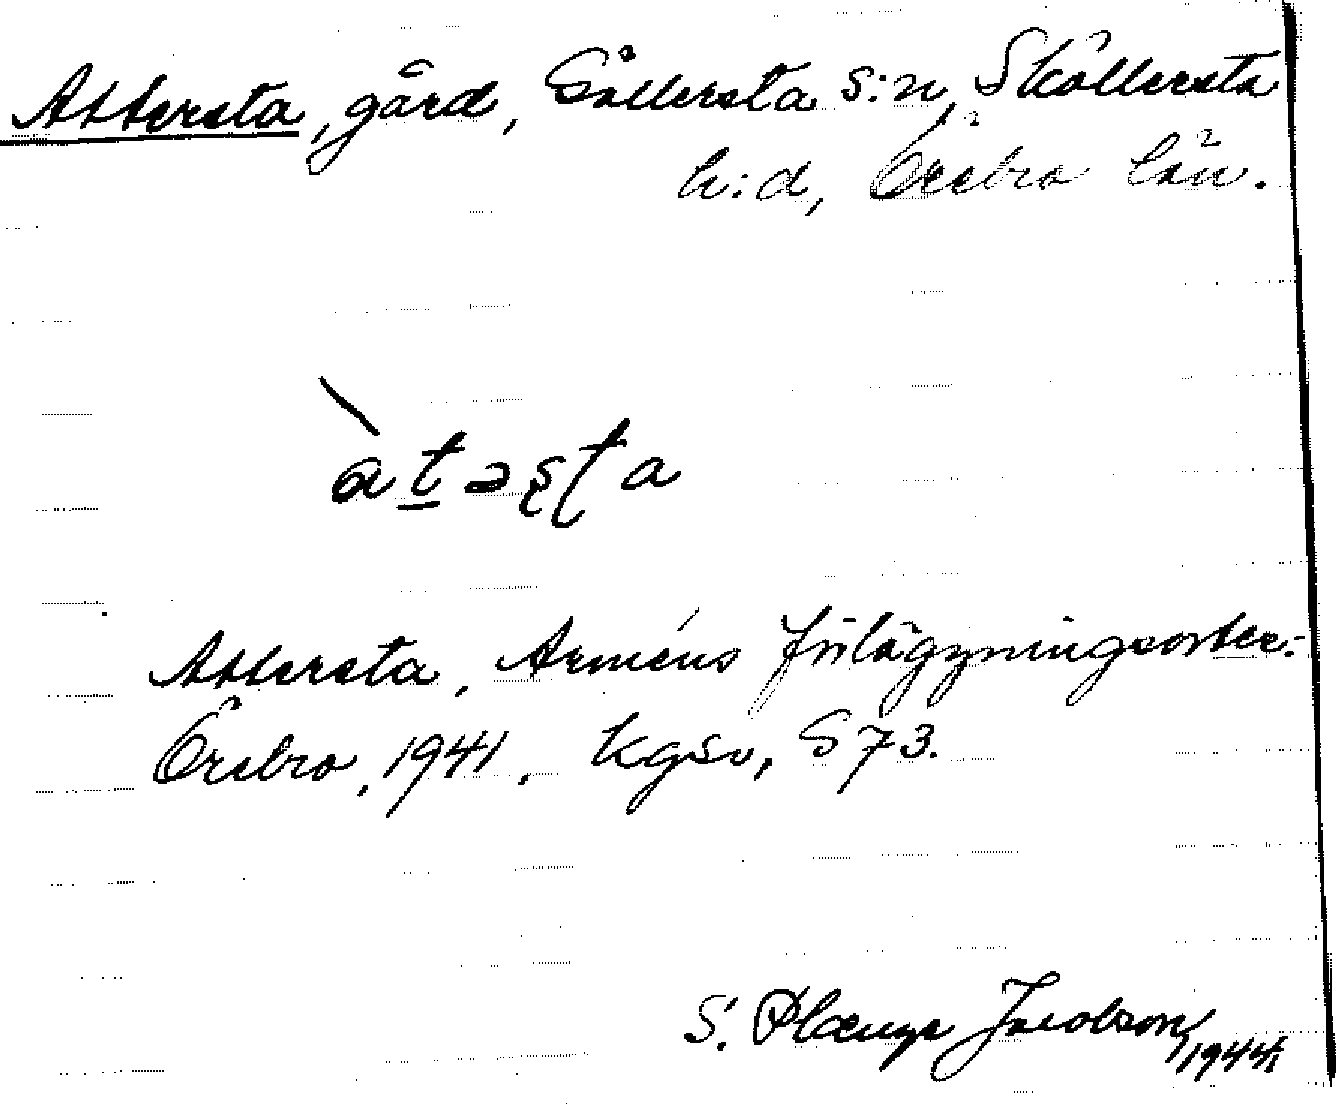 Attersta, gård, Gällersta s:n, Sköllersta
h:d, Örebro län.
a t ə s t a
Attersta, Arméns förläggningsorter:
Örebro, 1941, kgsv, S 73.
S. Jacobson 1944.